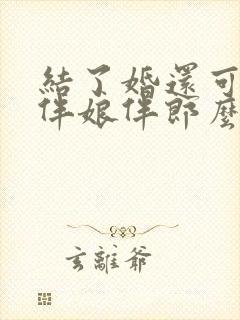 結了婚還可
伴娘伴郎麼
玄離爺